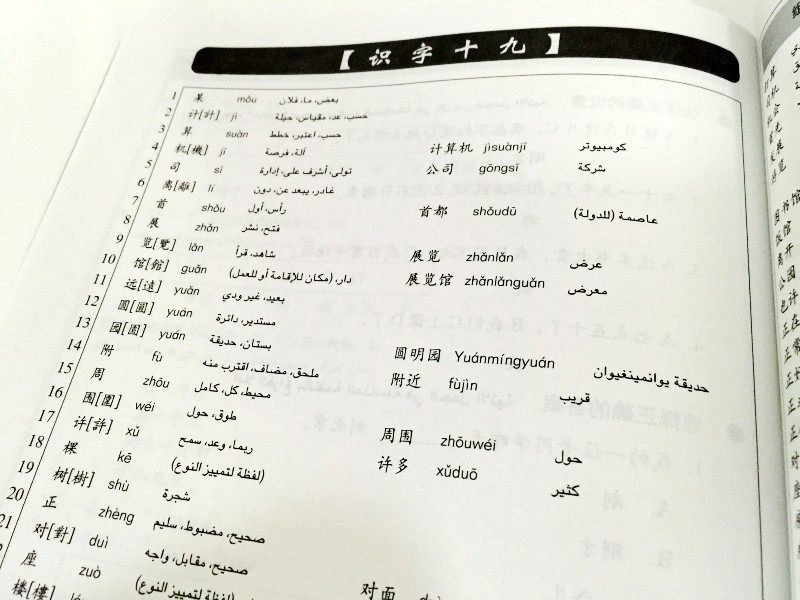 【识字十九】
1 某 mǒu بعض، ما، فلان
2 计[計] jì حسب، عد، مقياس، حيلة
3 算 suàn حسب، اعتبر، خطط 计算机 jìsuànjī كومبيوتر
4 机[機] jī آلة، فرصة
5 司 sī تولى، أشرف على، إدارة 公司 gōngsī شركة
6 离[離] lí غادر، يبعد عن، دون
7 首 shǒu رأس، أول 首都 shǒudū عاصمة (للدولة)
8 展 zhǎn فتح، نشر
9 览[覽] lǎn شاهد، قرأ 展览 zhǎnlǎn عرض
10 馆[館] guǎn دار، (مكان للإقامة أو للعمل) 展览馆 zhǎnlǎnguǎn معرض
11 远[遠] yuǎn بعيد، غير ودي
12 圆[圓] yuán مستدير، دائرة
13 园[園] yuán بستان، حديقة 圆明园 Yuánmíngyuán حديقة يوانمينغيوان
14 附 fù ملحق، مضاف، اقترب منه 附近 fùjìn قريب
15 周 zhōu محيط، كل، كامل
16 围[圍] wéi طوق، حول 周围 zhōuwéi حول
17 许[許] xǔ ربما، وعد، سمح 许多 xǔduō كثير
18 棵 kē (لفظة لتمييز النوع)
19 树[樹] shù شجرة
20 正 zhèng صحيح، مضبوط، سليم
21 对[對] duì صحيح، مقابل، واجه 对面
座 zuò (لفظة لتمييز النوع)
楼[樓]